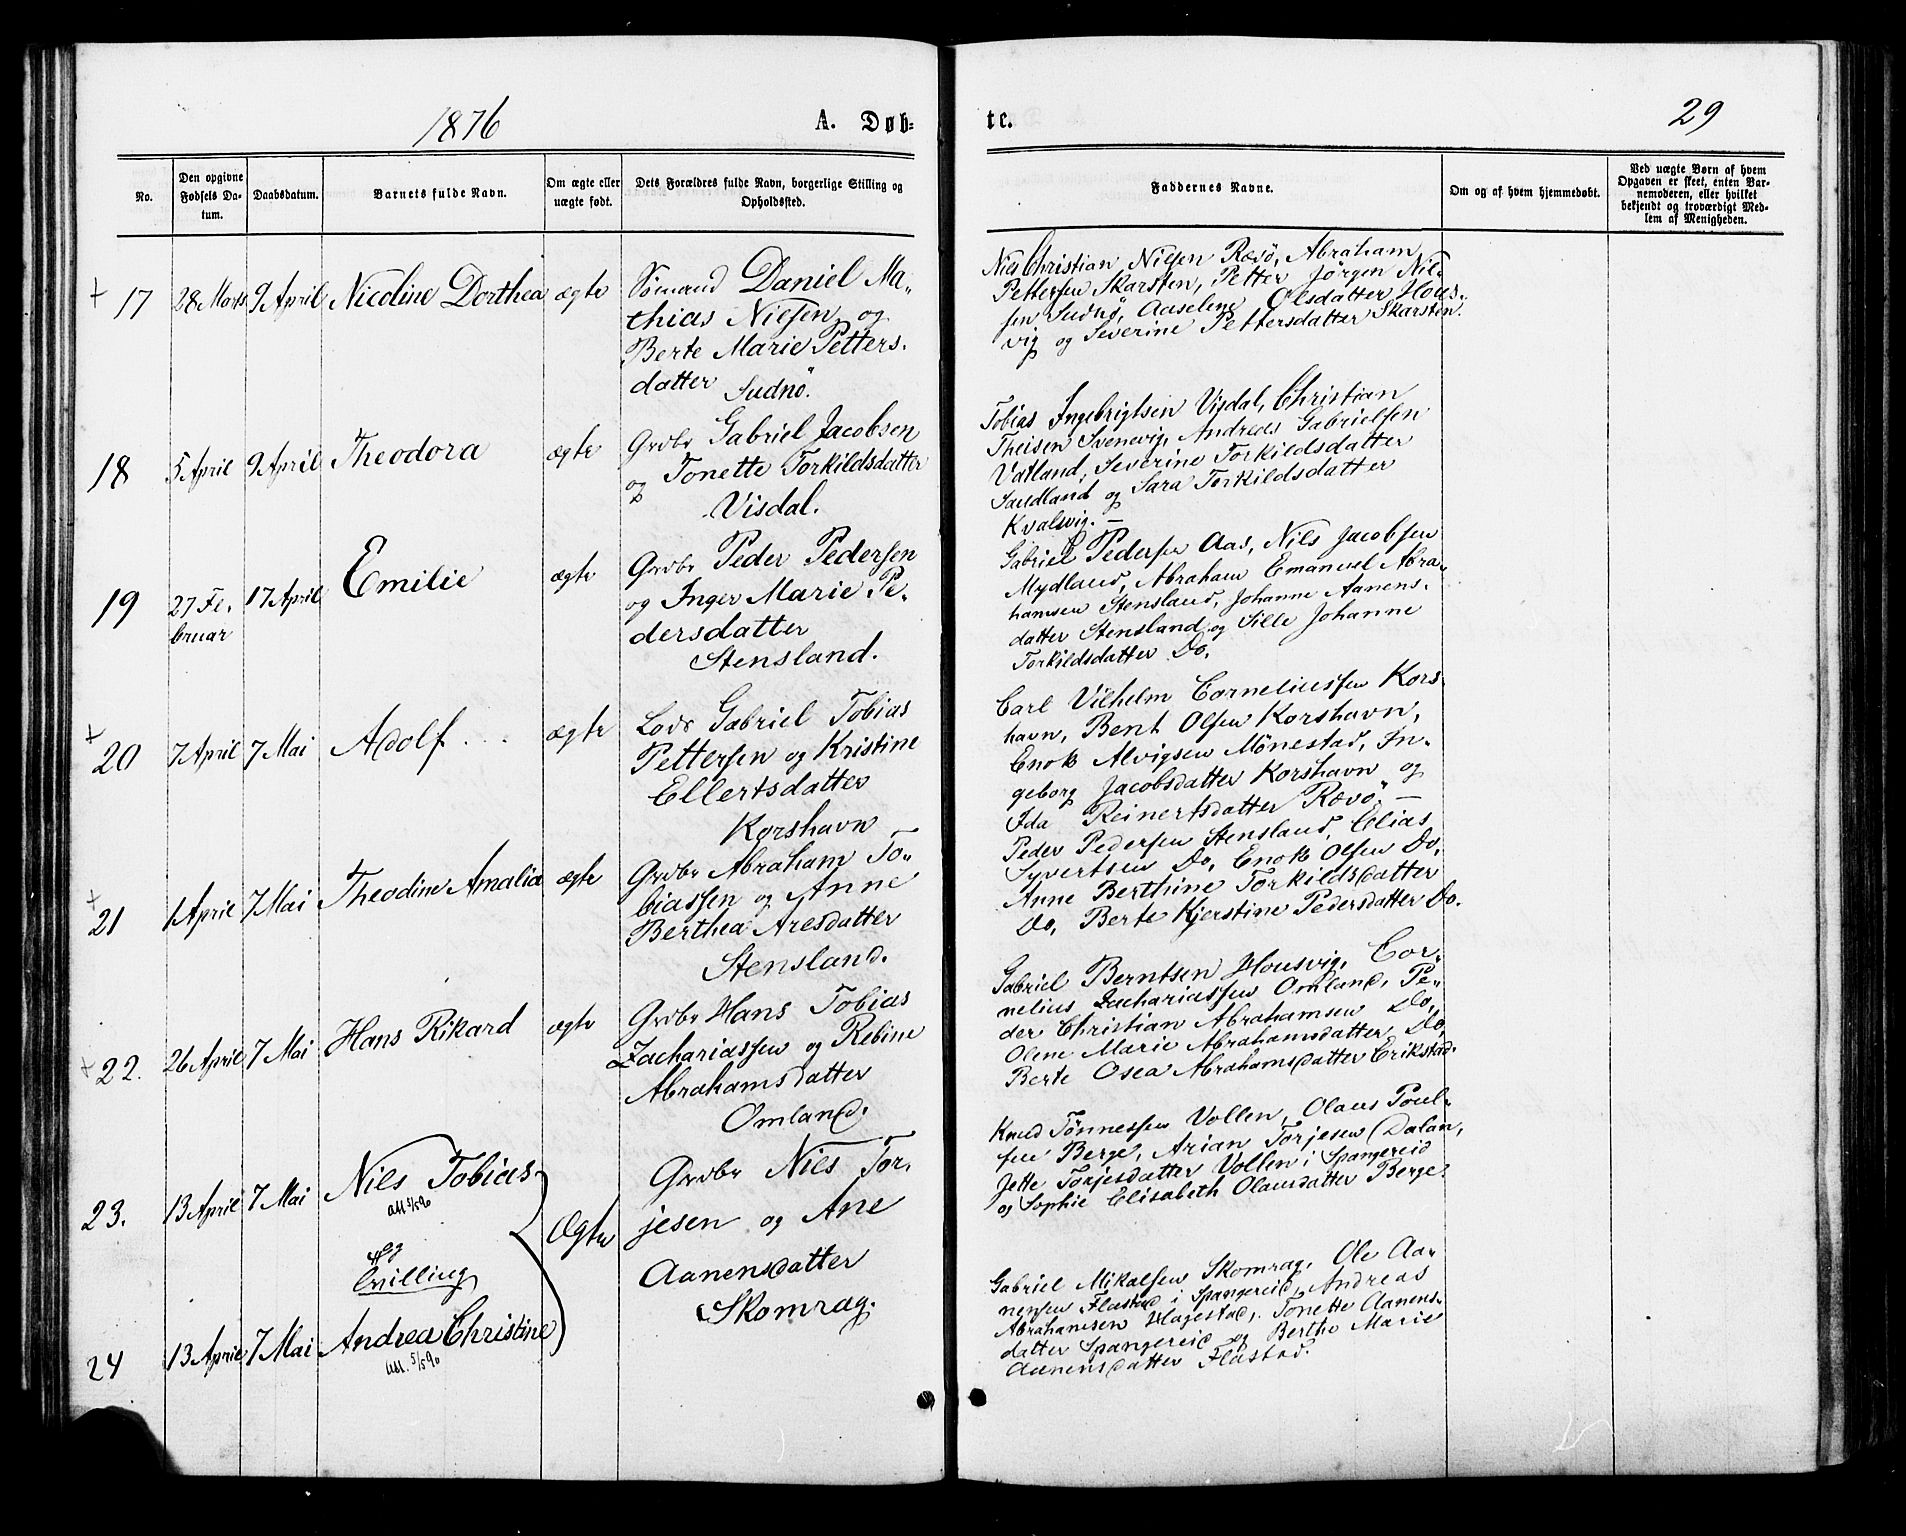 1876
A. Døb=
te.
29
No.
Den opgivne
Fødsels Da-
tum.
Daabsdatum.
Barnets fulde Navn.
Om ægte eller
uægte født.
Dets Forældres fulde Navn, borgerlige Stilling og
Opholdssted.
Faddernes Navne.
Om og af hvem hjemmedøbt.
Ved uægte Børn af hvem
Opgaven er skeet, enten Bar-
nemoderen, eller hvilket
bekjendt og troværdigt Med-
lem af Menigheden.
+ 17 28 Marts 9 April Nicoline Dorthea ægte
Sømand Daniel Ma-
thias Nielsen og
Berte Marie Petters-
datter Sudnö.
Niels Christian Nielsen Rævö, Abraham
Pettersen Skarsten, Petter Jörgen Niel-
sen Sudnö, Aaselene Olsdatter Hous-
vig og Severine Pettersdatter Skarsten.
18 5 April 9 April Theodora ægte
Grdbr Gabriel Jacobsen
og Tonette Torkildsdatter
Visdal.
Tobias Ingebrigtsen Visdal, Christian
Theisen Svenevig, Andreas Gabrielsen
Vatland, Severine Torkildsdatter
Sandland og Sara Torkildsdatter
Kvalsvig. —
19 27 Fe-
bruar
17 April Emilie ægte
Grdbr Peder Pedersen
og Inger Marie Pe-
dersdatter
Stensland.
Gabriel Pedersen Aas, Nils Jacobsen
Mydland, Abraham Emanuel Abra-
hamsen Stensland, Johanne Aanens-
datter Stensland og Sille Johanne
Torkildsdatter Do.
+ 20 7 April 7 Mai Adolf. . . ægte
Lods Gabriel Tobias
Pettersen og Kristine
Ellertsdatter
Korshavn
Carl Vilhelm Corneliussen Kors-
havn, Bent Olsen Korshavn,
Enok Alvigsen Mönestad, In-
geborg Jacobsdatter Korshavn og
Ida Reinertsdatter Rævö. —
+ 21 1 April 7 Mai Theodine Amalia ægte
Grdbr Abraham To-
biassen og Anne
Berthea Aresdatter
Stensland.
Peder Pedersen Stensland, Elias
Syvertsen Do, Enok Olsen Do,
Anne Berthine Torkildsdatter
Do, Berte Kjerstine Pedersdatter Do.
+ 22. 26 April 7 Mai Hans Rikard ægte
Grdbr Hans Tobias
Zachariassen og Rebine
Abrahamsdatter
Omland.
Gabriel Berntsen Housvig, Cor-
nelius Zachariassen Omland, Pe-
der Christian Abrahamsen Do,
Olene Marie Abrahamsdatter Do,
Berte Osea Abrahamsdatter Erikstad.
23. 13 April 7 Mai Nils Tobias
Att 5/5 90
og
Tvilling
Ægte
Grdbr Nils Tor-
jesen og Ane
Aanensdatter
Skomrag.
Knud Tönnessen Vollen, Olaus Poul-
sen Berge, Arian Torjesen Dalan,
Jette Torjesdatter Vollen i Spangereid
og Sophie Elisabeth Olausdatter Berge.
24 13 April 7 Mai Andrea Christine
Att. 5/5 90
Gabriel Mikalsen Skomrag, Ole Aa-
nensen Flastad i Spangereid, Andreas
Abrahamsen Hagestad, Tonette Aanens-
datter Spangereid og Berthe Marie
Aanensdatter Flastad.